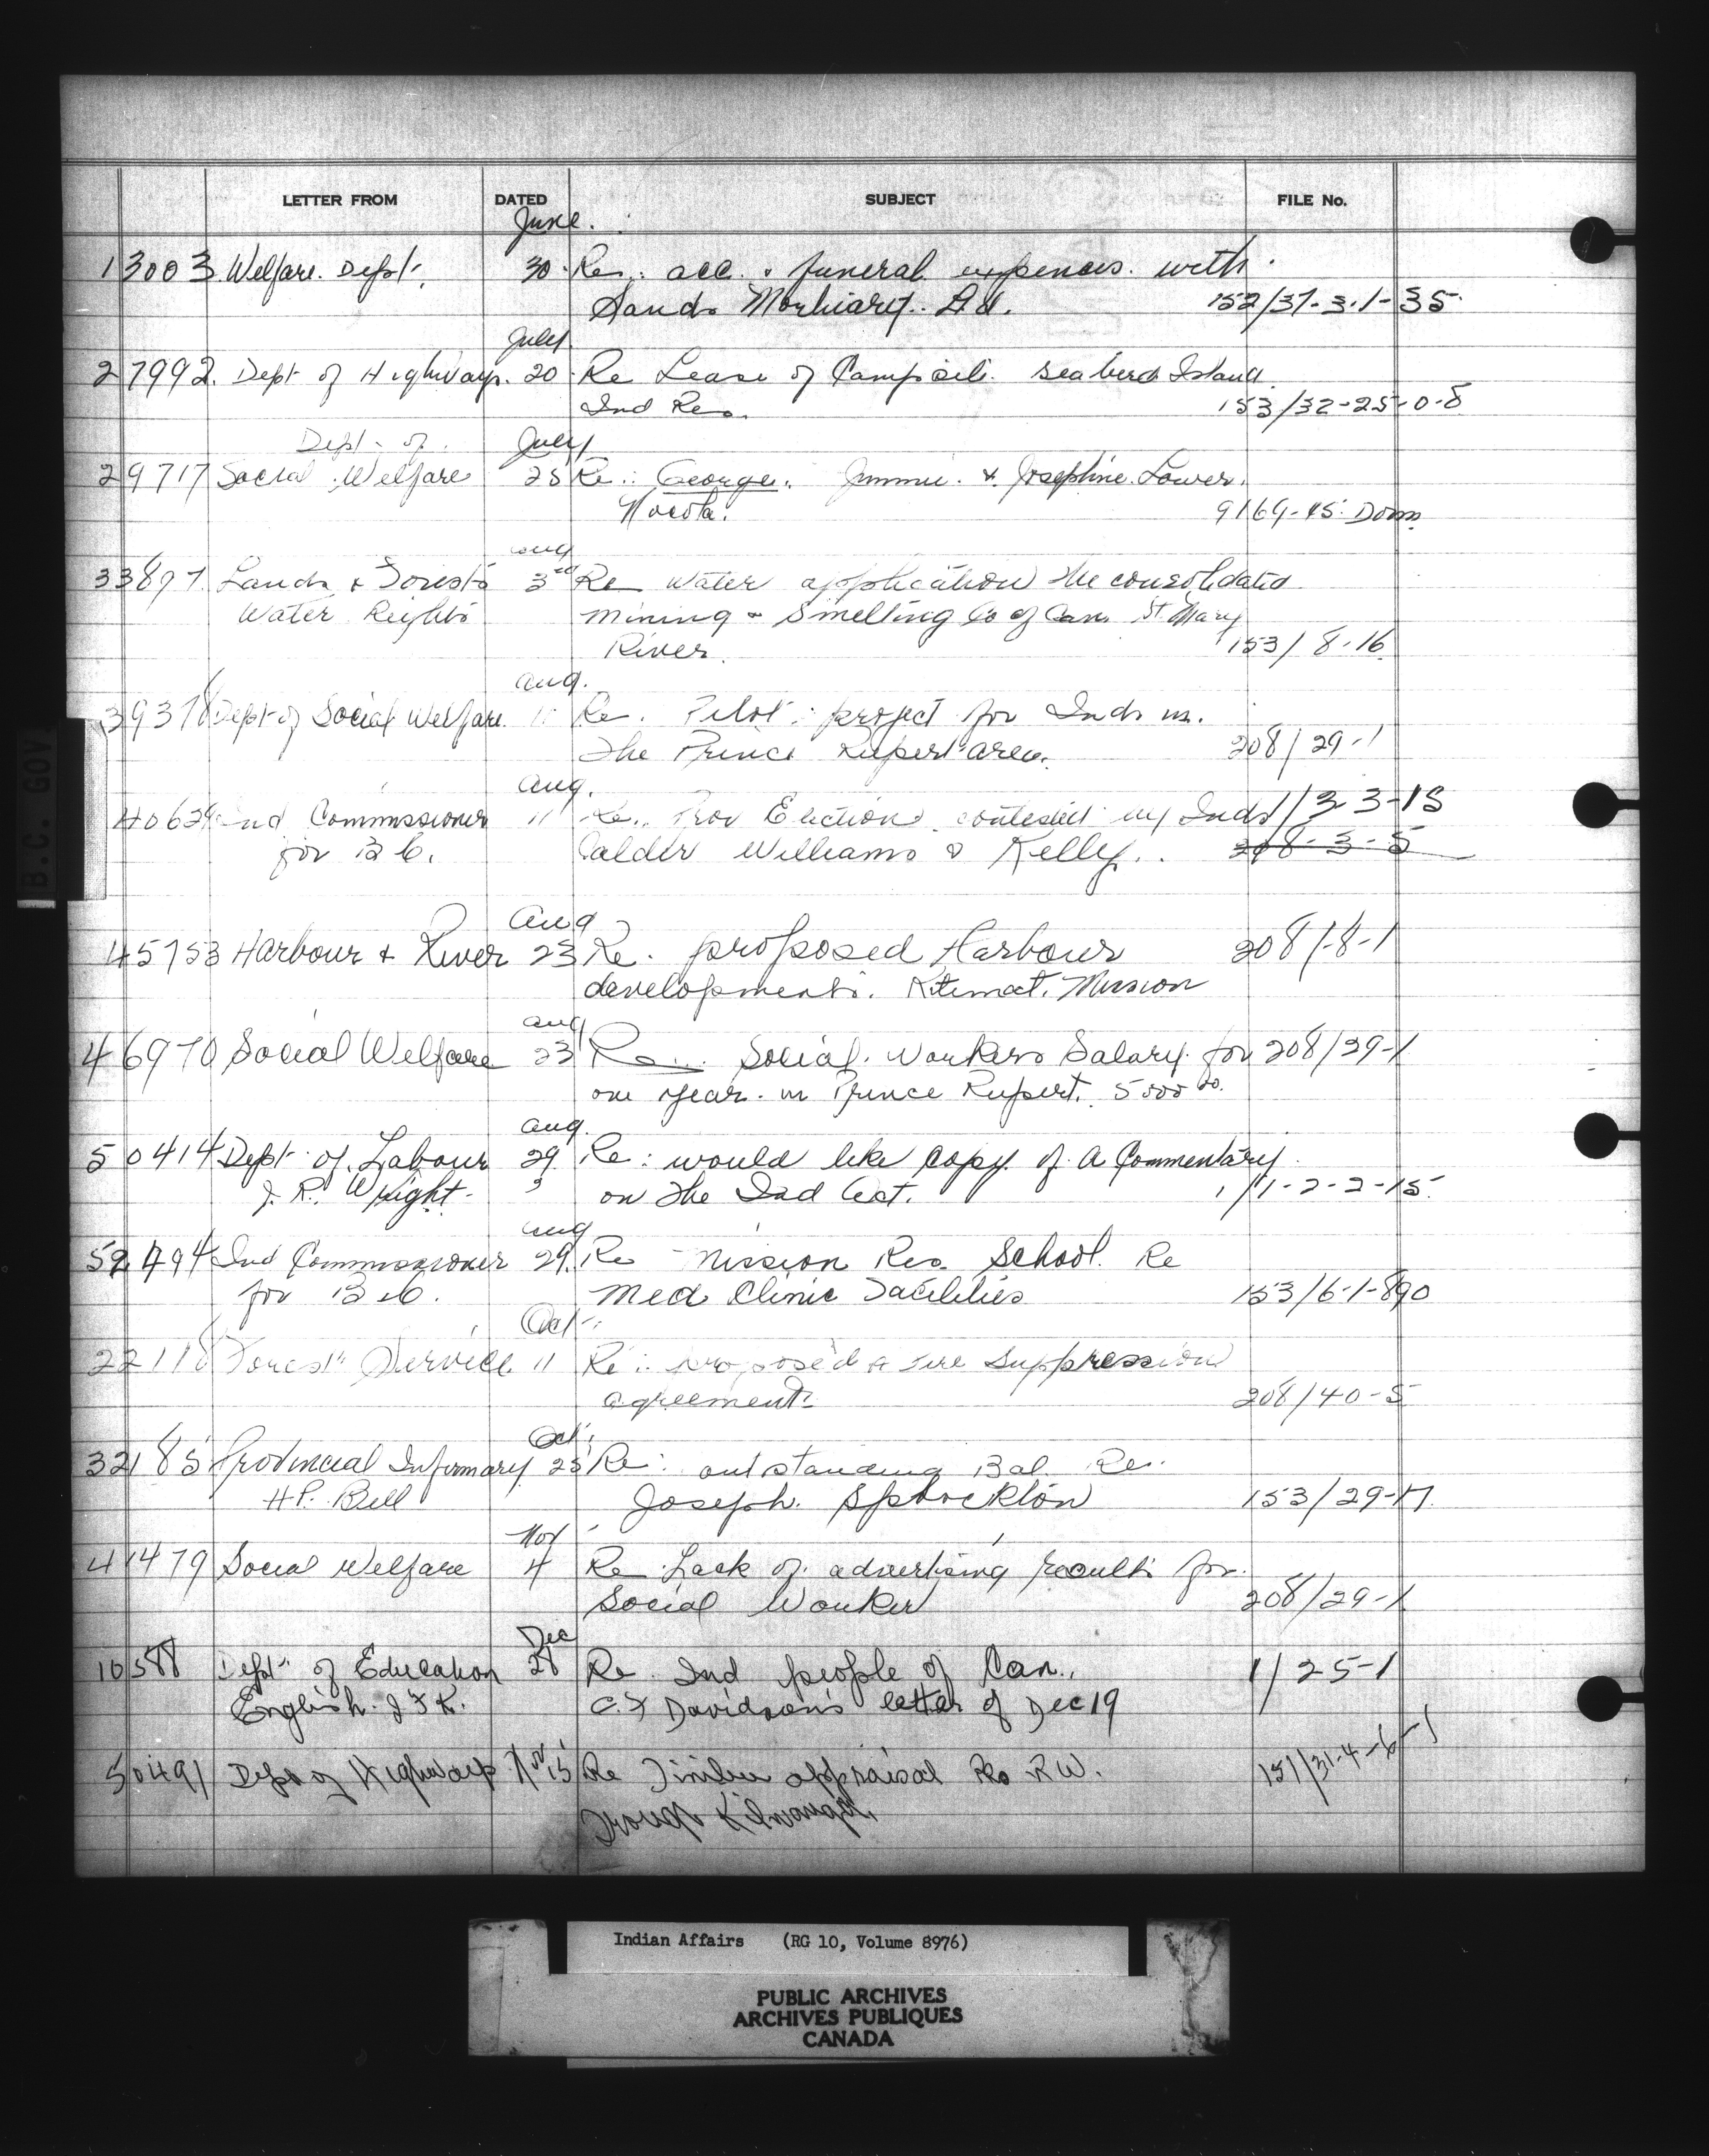 LETTER FROM DATED SUBJECT FILE No.
June.
13003 Welfare Dept. 30 Re: acc. & funeral expences with
Sands Mortuary Ltd. 152/37-3-1-35
July
27992 Dept of Highways. 20 Re Lease of Campsite Seabird Island
Ind Res. 153/32-25-0-8
Dept. of July
29717 Social Welfare 25 Re: George, Jimmie & Josephine Lower
Nicola. 9169-45 Dom
Aug
33897 Lands & Forests 3rd Re Water application The consolidated
Water Rights Mining & Smelting Co of Can St Mary
River. 153/8-16
Aug.
39378 Dept of Social Welfare 11 Re. Pilot project for Inds in
The Prince Rupert area. 208/29-1
Aug.
40629 Ind Commissioner 11 Re. Prov Election contested by Inds 1/3-3-15
for B C. Calder Williams & Kelly. 208-3-5
Aug
45753 Harbour & River 23 Re. proposed Harbour 208/-8-1
developments. Kitimat Mission
Aug
46970 Social Welfare 23 Re. Social Workers Salary for 208/29-1
one year in Prince Rupert. 5000 00.
Aug.
50414 Dept of Labour 29 Re: would like copy of A Commentary
J. R. Wright on The Ind Act. 1/1-2-2-15
Aug
52494 Ind Commissioner 29. Re Mission Res School Re
for B C. Med Clinic Facilities 153/6-1-890
Oct
22118 Forest Service 11 Re: proposed Fire Suppression
agreement 208/40-5
Oct.
32185 Provincial Infirmary 25 Re: outstanding Bal Re
H.P. Bell Joseph 153/29-17
Nov
41479 Social Welfare 4 Re Lack of advertising results for
Social Worker 208/29-1
Dec
10588 Dept of Education 28 Re. Ind people of Can. 1/25-1
English. J F K. C. F Davidson's letter of Dec 19
50491 Dept of Highways Nov 15 Re Timber appraisal R W. 151/31-4-6-1
B.C. GOV
Indian Affairs (RG 10, Volume 8976)
PUBLIC ARCHIVES
ARCHIVES PUBLIQUES
CANADA